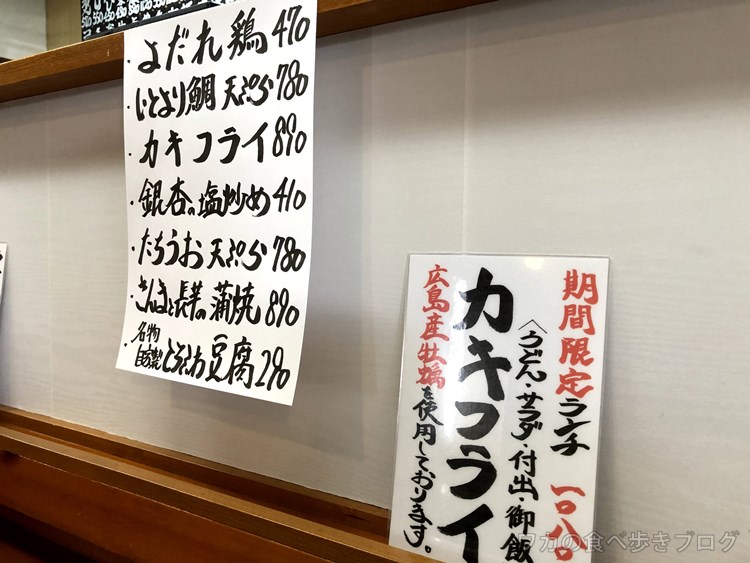 ・よだれ鶏 470
・いとより鯛 天ぷら 780
・カキフライ 890
・銀杏の塩炒め 410
・たちうお 天ぷら 780
・さんまと長芋の蒲焼 890
・名物
自家製とろとろ豆腐 290
期間限定ランチ 一〇八〇
〈うどん・サラダ・付出・御飯
カキフライ
広島産牡蠣を使用しております。
ワカの食べ歩きブログ